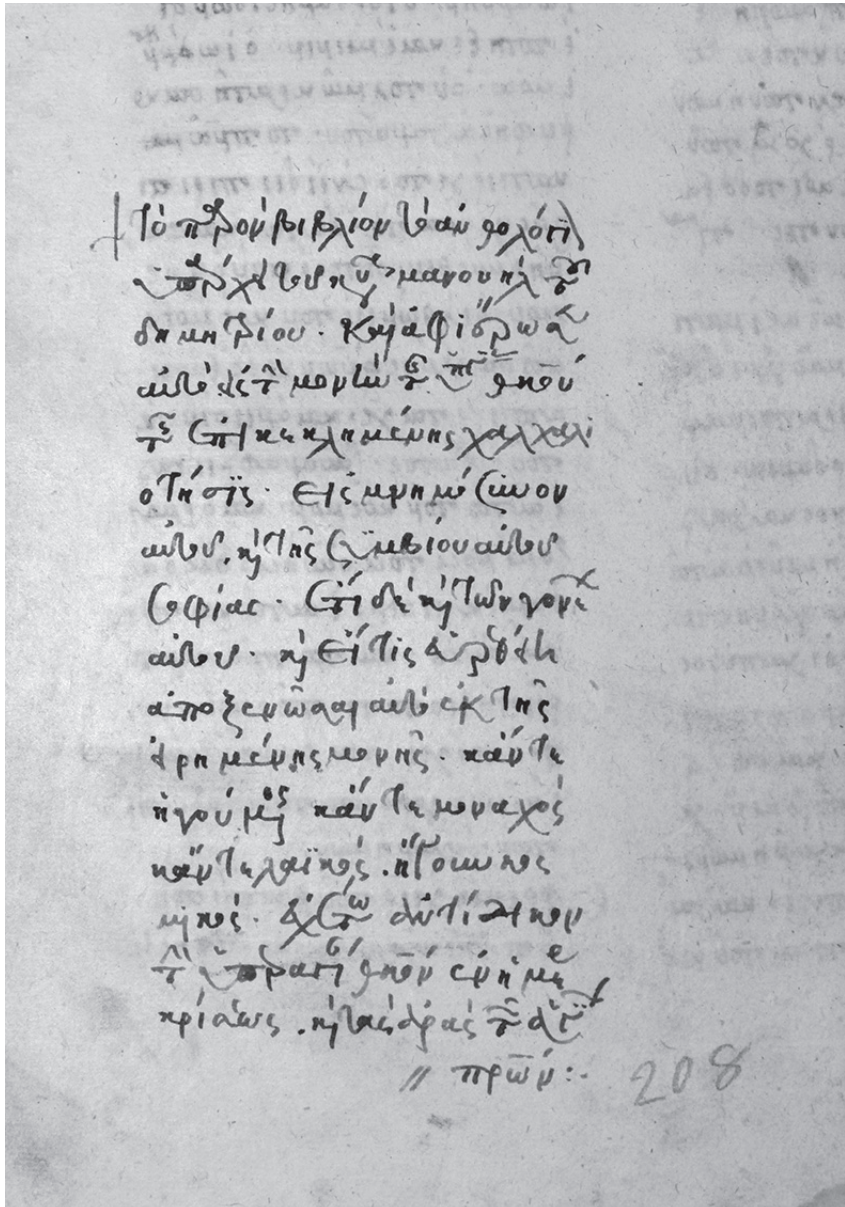 † Τὸ παρὸν βιβλίον τὸ ἀνθολόγι
ὑπάρχει τοῦ κυροῦ μανουὴλ τοῦ
δημητρίου· καὶ ἀφιέρωσ
αὐτὸ εἰς τὴν μονὴν τῆς ὑπεραγίας θκου
τῆς ἐπικεκλημένης χαλχαλι
οτήσης· εἰς μνημόσυνον
αὐτοῦ, καὶ τῆς συμβίου αὐτοῦ
σοφίας· ἔτι δὲ καὶ τῶν γονέων
αὐτοῦ· καὶ εἴ τις εὑρεθῆ
ἀποξενῶσαι αὐτὸ ἐκ τῆς
εἰρημένης μονῆς· κἄν τε
ἡγούμενος κἄν τε μοναχὸς
κἄν τε λαϊκὸς· ἢ
ἐχέτω ἀντίδικον
τὴν ὑπεραγίαν θκον ἐν ἡμέρα
κρίσεως, καὶ τὰς ἀρὰς τῶν ἁγίων
// πρων:·
208